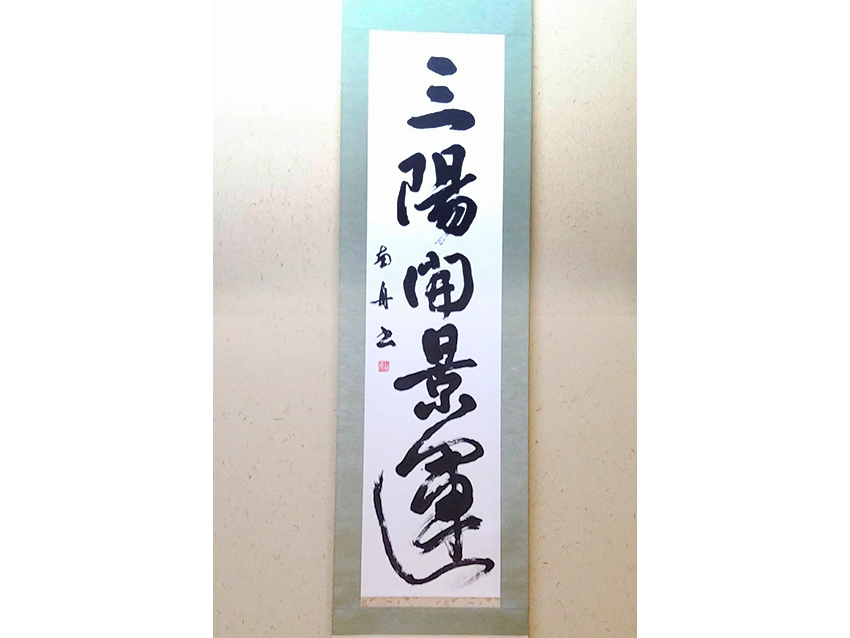 三陽開景運
南舟書